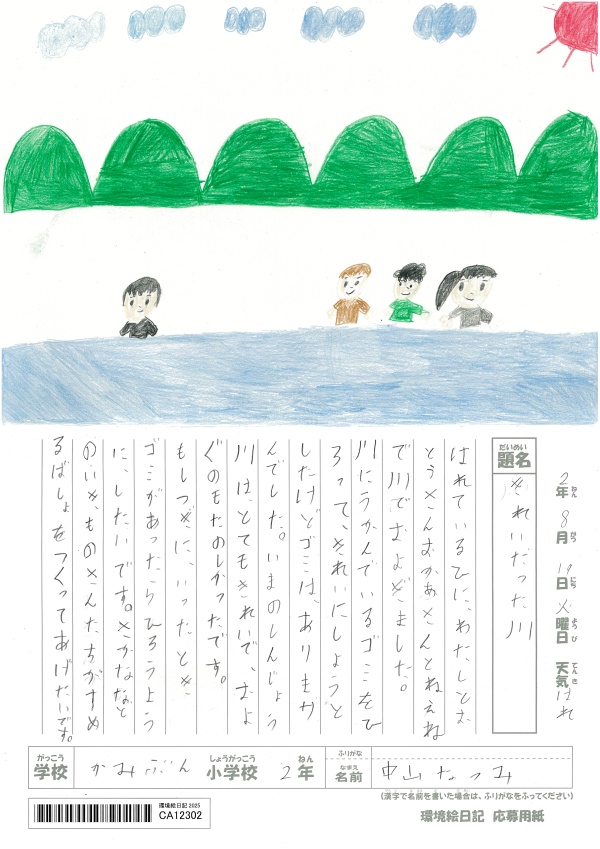 2年8月19日火曜日 天気はれ
題名 きれいだった川
はれているひに、わたしとお
とうさんおかあさんとねえね
で川でおよぎました。
川にうかんでいるゴミをひ
ろって、きれいにしようと
したけどゴミは、ありませ
んでした。いまのしんじょう
川は、とてもきれいで、およ
ぐのもたのしかったです。
もしつぎに、いったとき
ゴミがあったらひろうよう
に、したいです。さかななど
のいきものさんたちがすめ
るばしょをつくってあげたいです。
がっこう 学校 かみぶん しょうがっこう 小学校 2年 ねん
ふりがな
なまえ 名前 中山なつみ
(漢字で名前を書いた場合は、ふりがなをふってください)
環境絵日記 2025
CA12302
環境絵日記 応募用紙